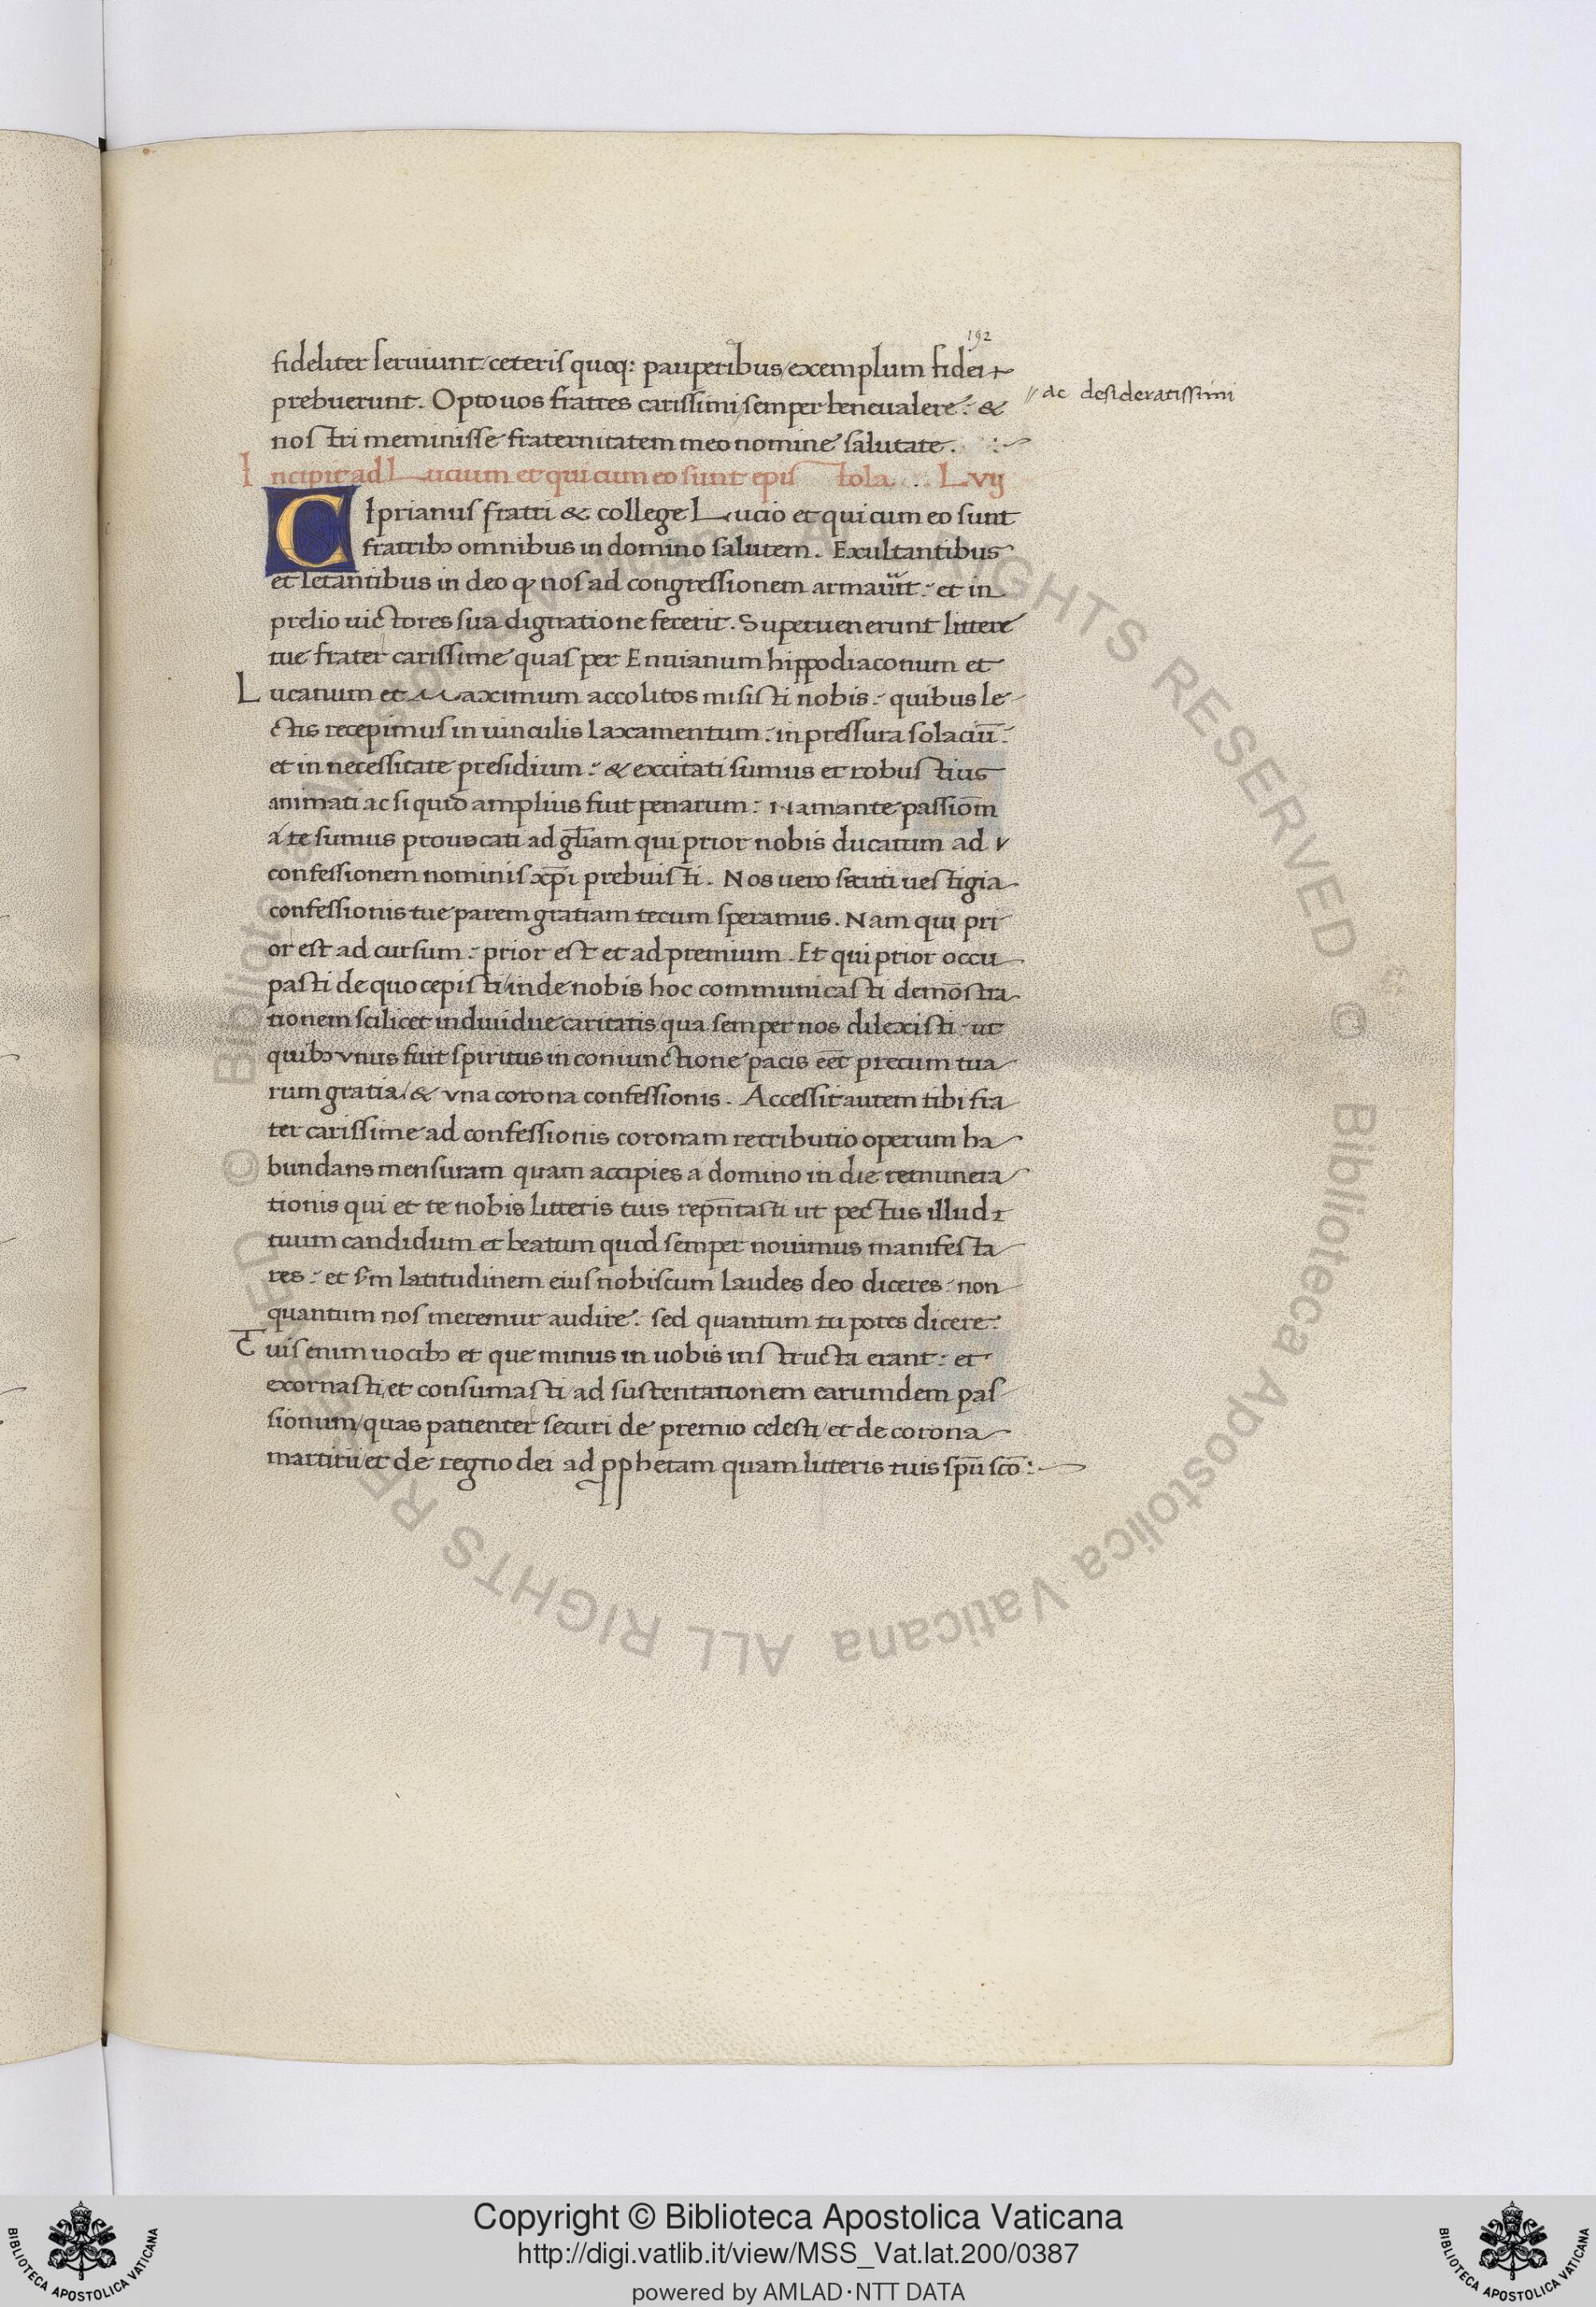 192
fideliter seruiunt/ceteris quoq: pauperibus/exemplum fidei
prebuerunt. Opto uos fratres carissimi/semper bene ualere: &
// ac desideratissimi
nostri meminisse fraternitatem meo nomine salutate. :~
Incipit ad Lucium et qui cum eo sunt epistola .. Lvij
Ciprianus fratri & college Lucio et qui cum eo sunt
fratribꝫ omnibus in domino salutem. Exultantibus
et letantibus in deo ꝙ nos ad congressionem armauit: et in
prelio uictores sua dignatione fecerit. Superuenerunt littere
tue frater carissime quas per Ennianum hippodiaconum et
Lucanum et Maximum accolitos misisti nobis: quibus le
ctis recepimus in uinculis laxamentum: in pressura solaciū:
et in necessitate presidium: & excitati sumus et robustius
animati ac si quid amplius fuit penarum: Nam ante passiōm
a te sumus prouocati ad gl̄iam qui prior nobis ducatum ad
confessionem nominis xp̄i prebuisti. Nos uero secuti uestigia
confessionis tue parem gratiam tecum speramus. Nam qui pri
or est ad cursum: prior est et ad premium. Et qui prior occu
pasti de quo cepisti/inde nobis hoc communicasti demōstra
tionem scilicet indiuidue caritatis qua semper nos dilexisti: ut
quibꝫ vnus fuit spiritus in coniunctione pacis eēt precum tua
rum gratia/& vna corona confessionis. Accessit autem tibi fra
ter carissime ad confessionis coronam retributio operum ha
bundans mensuram quam accipies a domino in die remunera
tionis qui et te nobis litteris tuis repn̄tasti ut pectus illud
tuum candidum et beatum quod semper nouimus manifesta
res: et sm̄ latitudinem eius nobiscum laudes deo diceres: non
quantum nos meremur audire: sed quantum tu potes dicere:
Tuis enim uocibꝫ et que minus in uobis instructa erant: et
exornasti/et consumasti/ad sustentationem earumdem pas
sionum/quas patienter securi de premio celesti/et de corona
martirii/et de regno dei ad ꝓphetam quam litteris tuis spū scō:
Copyright © Biblioteca Apostolica Vaticana
http://digi.vatlib.it/view/MSS_Vat.lat.200/0387
powered by AMLAD·NTT DATA
BIBLIOTECA APOSTOLICA VATICANA
BIBLIOTECA APOSTOLICA VATICANA
© Biblioteca Apostolica Vaticana ALL RIGHTS RESERVED © Biblioteca Apostolica Vaticana ALL RIGHTS RESERVED